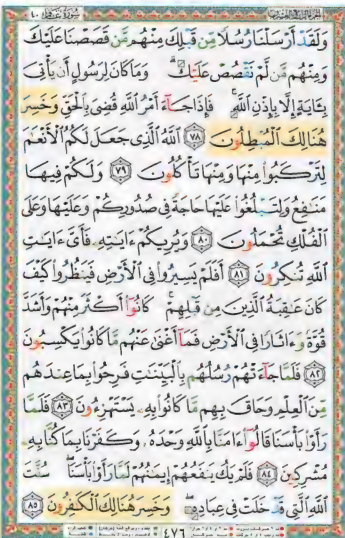 سُورَةُ غَافِرٍ ٤٠
وَلَقَدۡ أَرۡسَلۡنَا رُسُلٗا مِّن قَبۡلِكَ مِنۡهُم مَّن قَصَصۡنَا عَلَيۡكَ
وَمِنۡهُم مَّن لَّمۡ نَقۡصُصۡ عَلَيۡكَۗ وَمَا كَانَ لِرَسُولٍ أَن يَأۡتِيَ
بِـَٔايَةٍ إِلَّا بِإِذۡنِ ٱللَّهِۚ فَإِذَا جَآءَ أَمۡرُ ٱللَّهِ قُضِيَ بِٱلۡحَقِّ وَخَسِرَ
هُنَالِكَ ٱلۡمُبۡطِلُونَ ٧٨ ٱللَّهُ ٱلَّذِي جَعَلَ لَكُمُ ٱلۡأَنۡعَٰمَ
لِتَرۡكَبُواْ مِنۡهَا وَمِنۡهَا تَأۡكُلُونَ ٧٩ وَلَكُمۡ فِيهَا
مَنَٰفِعُ وَلِتَبۡلُغُواْ عَلَيۡهَا حَاجَةٗ فِي صُدُورِكُمۡ وَعَلَيۡهَا وَعَلَى
ٱلۡفُلۡكِ تُحۡمَلُونَ ٨٠ وَيُرِيكُمۡ ءَايَٰتِهِۦ فَأَيَّ ءَايَٰتِ
ٱللَّهِ تُنكِرُونَ ٨١ أَفَلَمۡ يَسِيرُواْ فِي ٱلۡأَرۡضِ فَيَنظُرُواْ كَيۡفَ
كَانَ عَٰقِبَةُ ٱلَّذِينَ مِن قَبۡلِهِمۡۚ كَانُوٓاْ أَكۡثَرَ مِنۡهُمۡ وَأَشَدَّ
قُوَّةٗ وَءَاثَارٗا فِي ٱلۡأَرۡضِ فَمَآ أَغۡنَىٰ عَنۡهُم مَّا كَانُواْ يَكۡسِبُونَ
٨٢ فَلَمَّا جَآءَتۡهُمۡ رُسُلُهُم بِٱلۡبَيِّنَٰتِ فَرِحُواْ بِمَا عِندَهُم
مِّنَ ٱلۡعِلۡمِ وَحَاقَ بِهِم مَّا كَانُواْ بِهِۦ يَسۡتَهۡزِءُونَ ٨٣ فَلَمَّا
رَأَوۡاْ بَأۡسَنَا قَالُوٓاْ ءَامَنَّا بِٱللَّهِ وَحۡدَهُۥ وَكَفَرۡنَا بِمَا كُنَّا بِهِۦ
مُشۡرِكِينَ ٨٤ فَلَمۡ يَكُ يَنفَعُهُمۡ إِيمَٰنُهُمۡ لَمَّا رَأَوۡاْ بَأۡسَنَاۖ سُنَّتَ
ٱللَّهِ ٱلَّتِي قَدۡ خَلَتۡ فِي عِبَادِهِۦۖ وَخَسِرَ هُنَالِكَ ٱلۡكَٰفِرُونَ ٨٥
٤٧٦